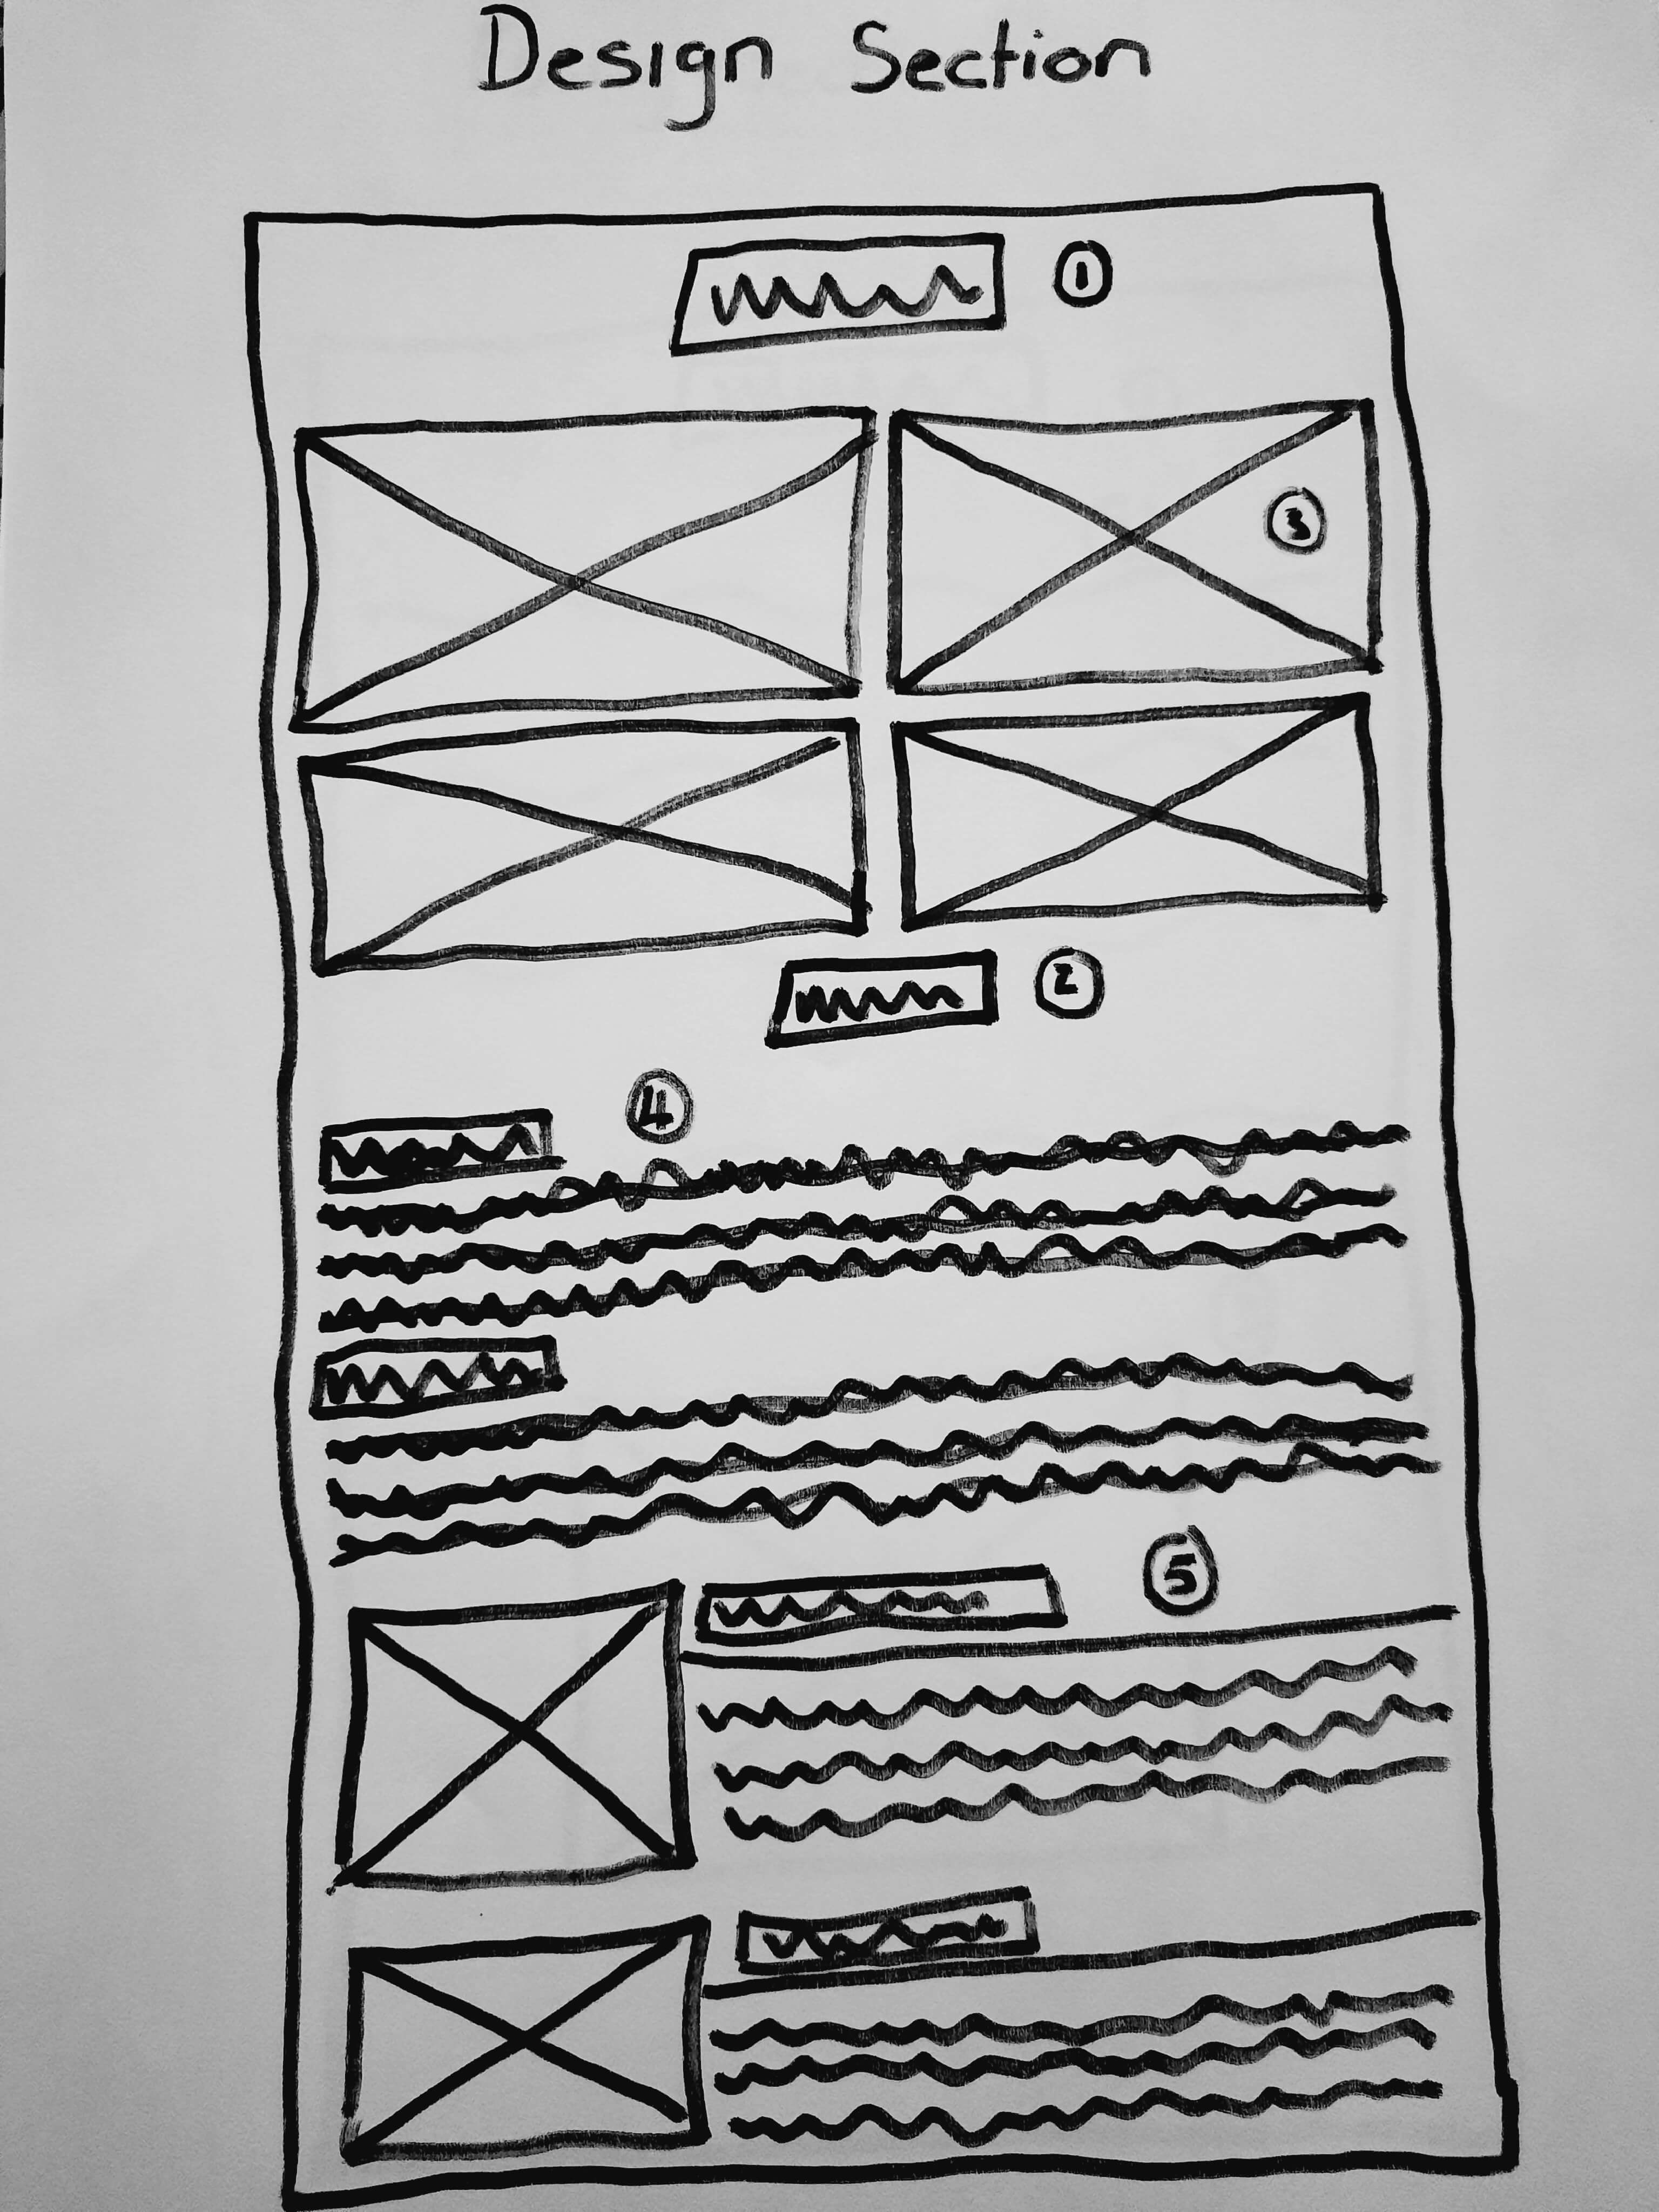 Design Section
1
3
2
4
5